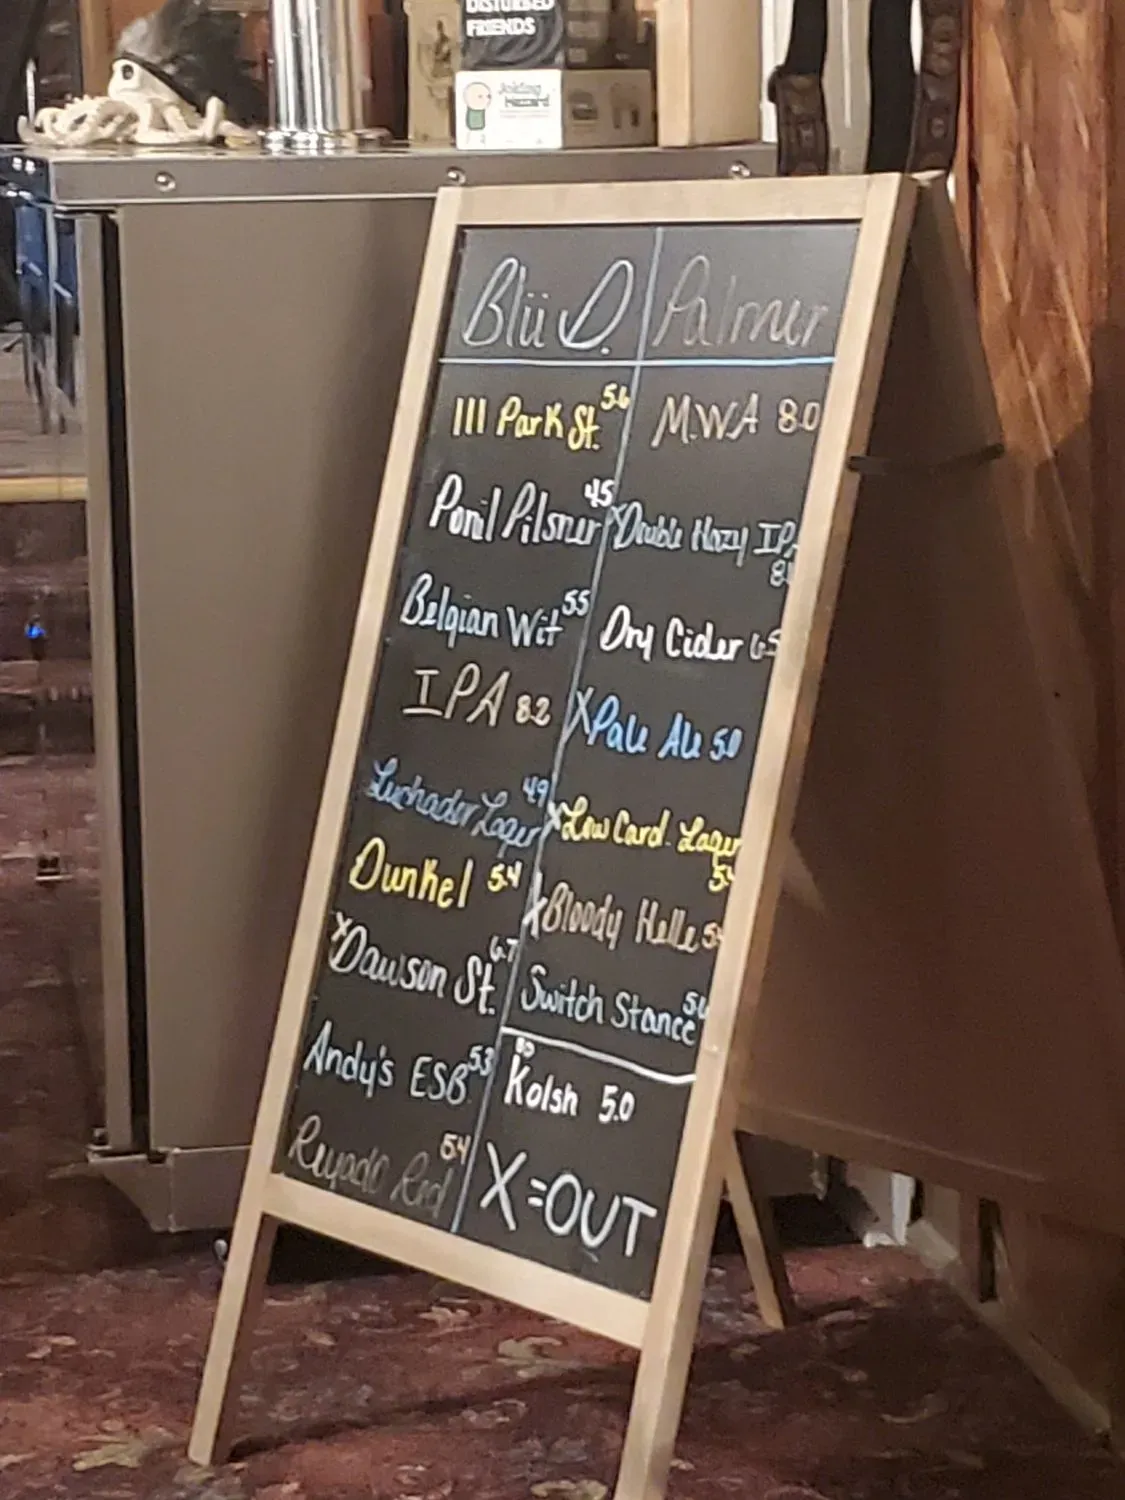 DISTURBED
FRIENDS
Joking
Hazard
Blü D.
111 Park St. 5.6
Pencil Pilsner 4.5
Belgian Wit 5.5
IPA 8.2
Luchador Lager 4.9
Dunkel 5.4
X Dawson St. 6.7
Andy's ESB 5.3
Red 5.4
Palmer
M.W.A 8.0
X Double Hazy IPA
Dry Cider 6.5
X Pale Ale 5.0
X Low Card. Lager
X Bloody Helle
Switch Stance
Kolsh 5.0
X=OUT